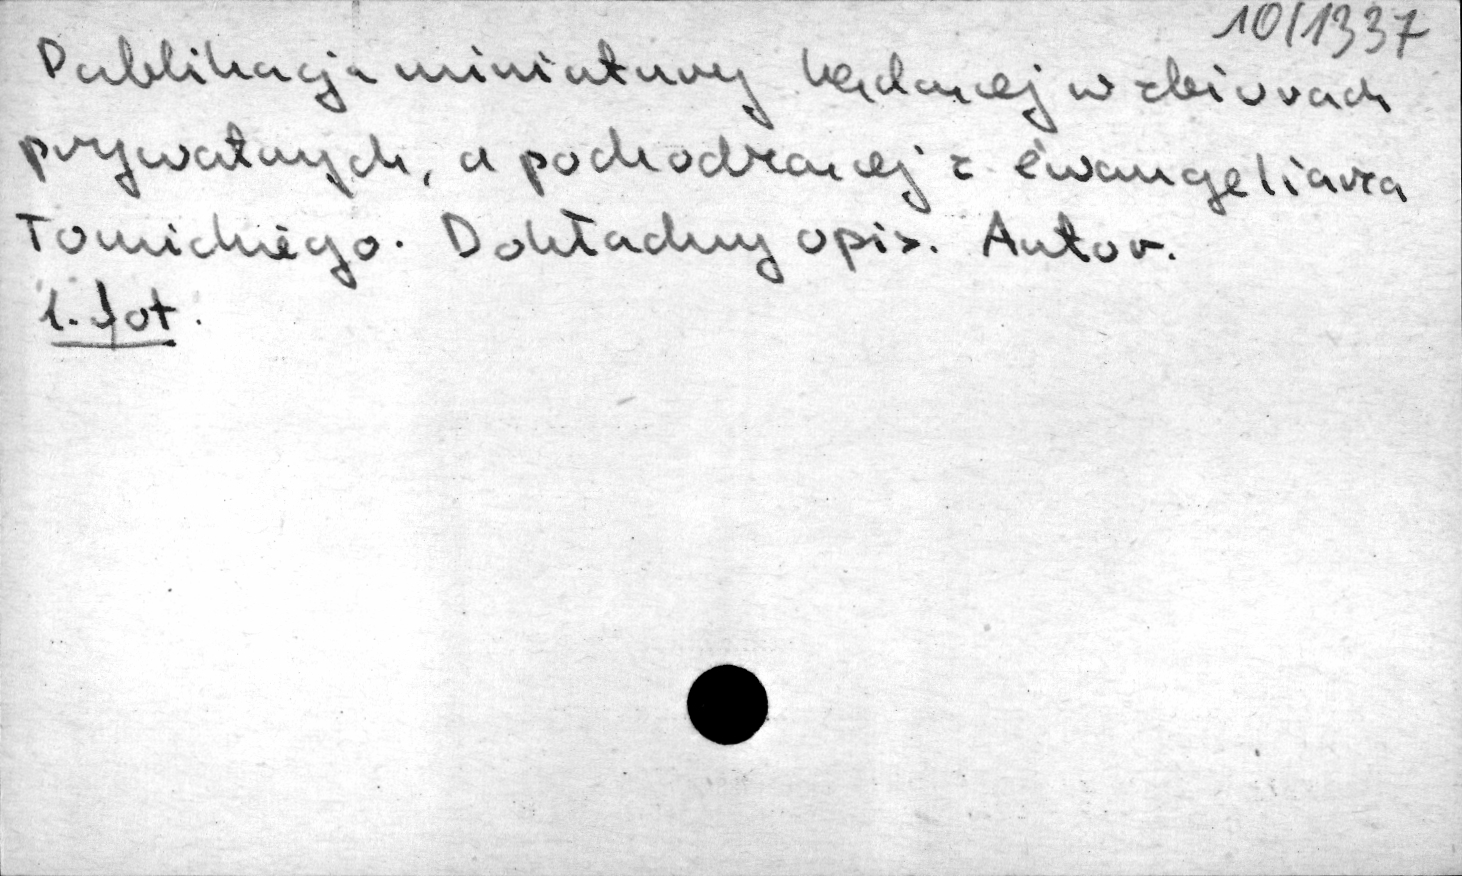 10/1337
Publikacja miniatury będącej w zbiorach
prywatnych, a pochodzącej z ewangeliarza
Tomickiego. Dokładny opis. Autor.
1. fot.